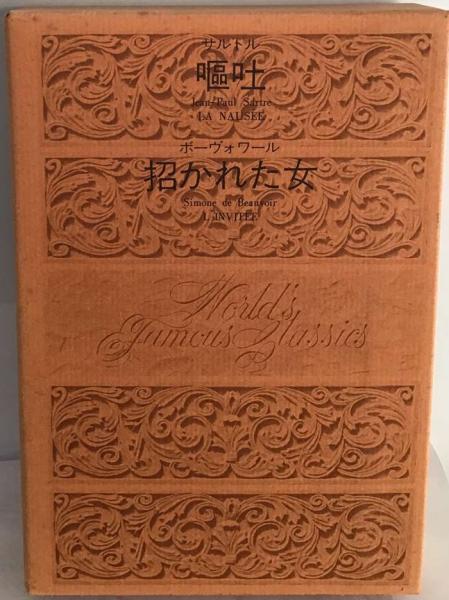 サルトル
嘔吐
Jean-Paul Sartre
LA NAUSÉE
ボーヴォワール
招かれた女
Simone de Beauvoir
L'INVITÉE
World's
Famous Classics